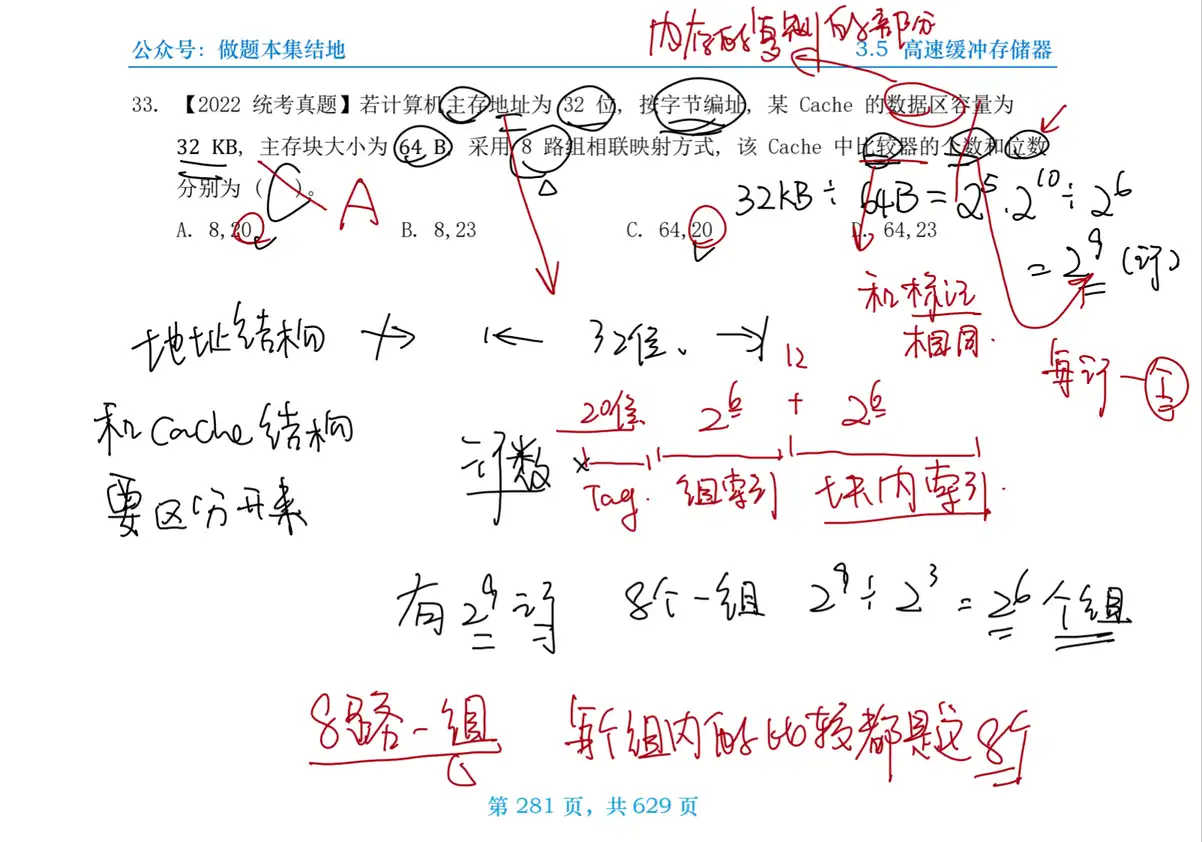 内存的复制的部分
公众号：做题本集结地
3.5 高速缓冲存储器
33. 【2022 统考真题】若计算机主存地址为 32 位，按字节编址，某 Cache 的数据区容量为
32 KB，主存块大小为 64 B，采用 8 路组相联映射方式，该 Cache 中比较器的个数和位数
分别为（ C ）。 A
32KB ÷ 64B = 2^5 · 2^10 ÷ 2^6
A. 8,20 B. 8,23 C. 64,20 D. 64,23
= 2^9 (行)
和标记
相同.
地址结构 32位、
每行一个
12
20位 2^6 + 2^6
和Cache结构
行数
Tag. 组索引 块内索引.
要区分开来
有 2^9 行 8个一组 2^9 ÷ 2^3 = 2^6 个组
8路一组 每个组内的比较都是这8个
第 281 页，共 629 页